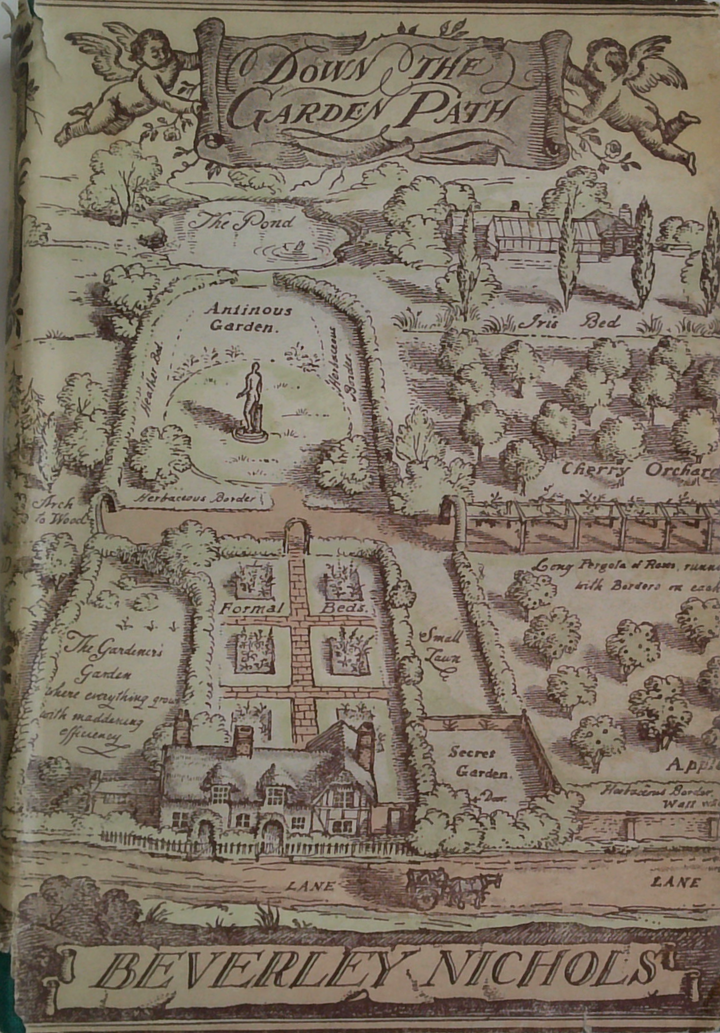 DOWN THE
GARDEN PATH
The Pond
Antinous
Garden.
Iris Bed
Heather Bed
Herbaceous
Border
Cherry Orchar
Herbaceous Border
Arch
To Wood
Long Pergola of Roses, runn
with Borders on each
Formal Beds.
Small
Lawn
The Gardener's
Garden
where everything grow
with maddening
efficiency
Secret
Garden.
Door.
Appl
Herbaceous Border,
Wall
LANE
LANE
BEVERLEY NICHOLS